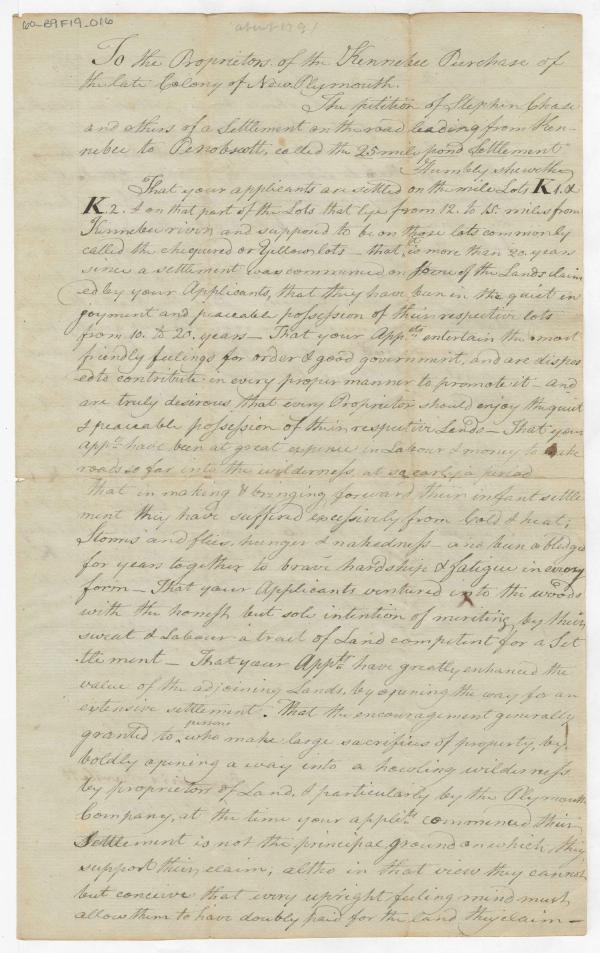 60-B9F19-016
about 179
To the Proprietors of the Kennebec Purchase of
the late Colony of New Plymouth.
The petition of Stephen Chase
and others of a Settlement on the road leading from Ken-
nebec to Penobscott, called the 25 mile pond Settlement
Humbly sheweth
That your applicants are settled on the mile Lots K 1. &
K. 2. & on that part of the Lots that lye from 12. to 15. miles from
Kennebec river and supposed to be on those lots commonly
called the chequered or Yellow lots – that it is more than 20 years
since a settlement was commenced on some of the Lands claim
ed by your Applicants, that they have been in the quiet in
joyment and peaceable possession of their respective lots
from 10. to 20. years – That your Appts entertain the most
friendly feelings for order & good government, and are dispos
ed to contribute in every proper manner to promote it – and
are truly desirous that every Proprietor should enjoy the quiet
& peaceable possession of their respective Lands – That your
appts have been at great expence in Labour & money to make
roads so far into the wilderness at so early a period
That in making & bringing forward their infant settle
ment they have suffered excessively from Cold & heat;
Storms and flies, hunger & nakedness – and been obliged
for years together to brave hardship & fatigue in every
form – That your Applicants ventured into the woods
with the honest but sole intention of meriting by their
sweat & Labour a trait of Land competent for a Set
tlement – That your Appts have greatly enhanced the
value of the adjoining Lands, by opening the way for an
extensive settlement. That the encouragement generally
granted to persons who make large sacrifices of property, by
boldly opening a way into a howling wilderness
by proprietors of Land, & particularly by the Plymouth
Company, at the time your applits commenced their
Settlement is not the principal ground on which they
support their claim; altho in that view they cannot
but conceive that every upright feeling mind must
allow them to have doubly paid for the land they claim –